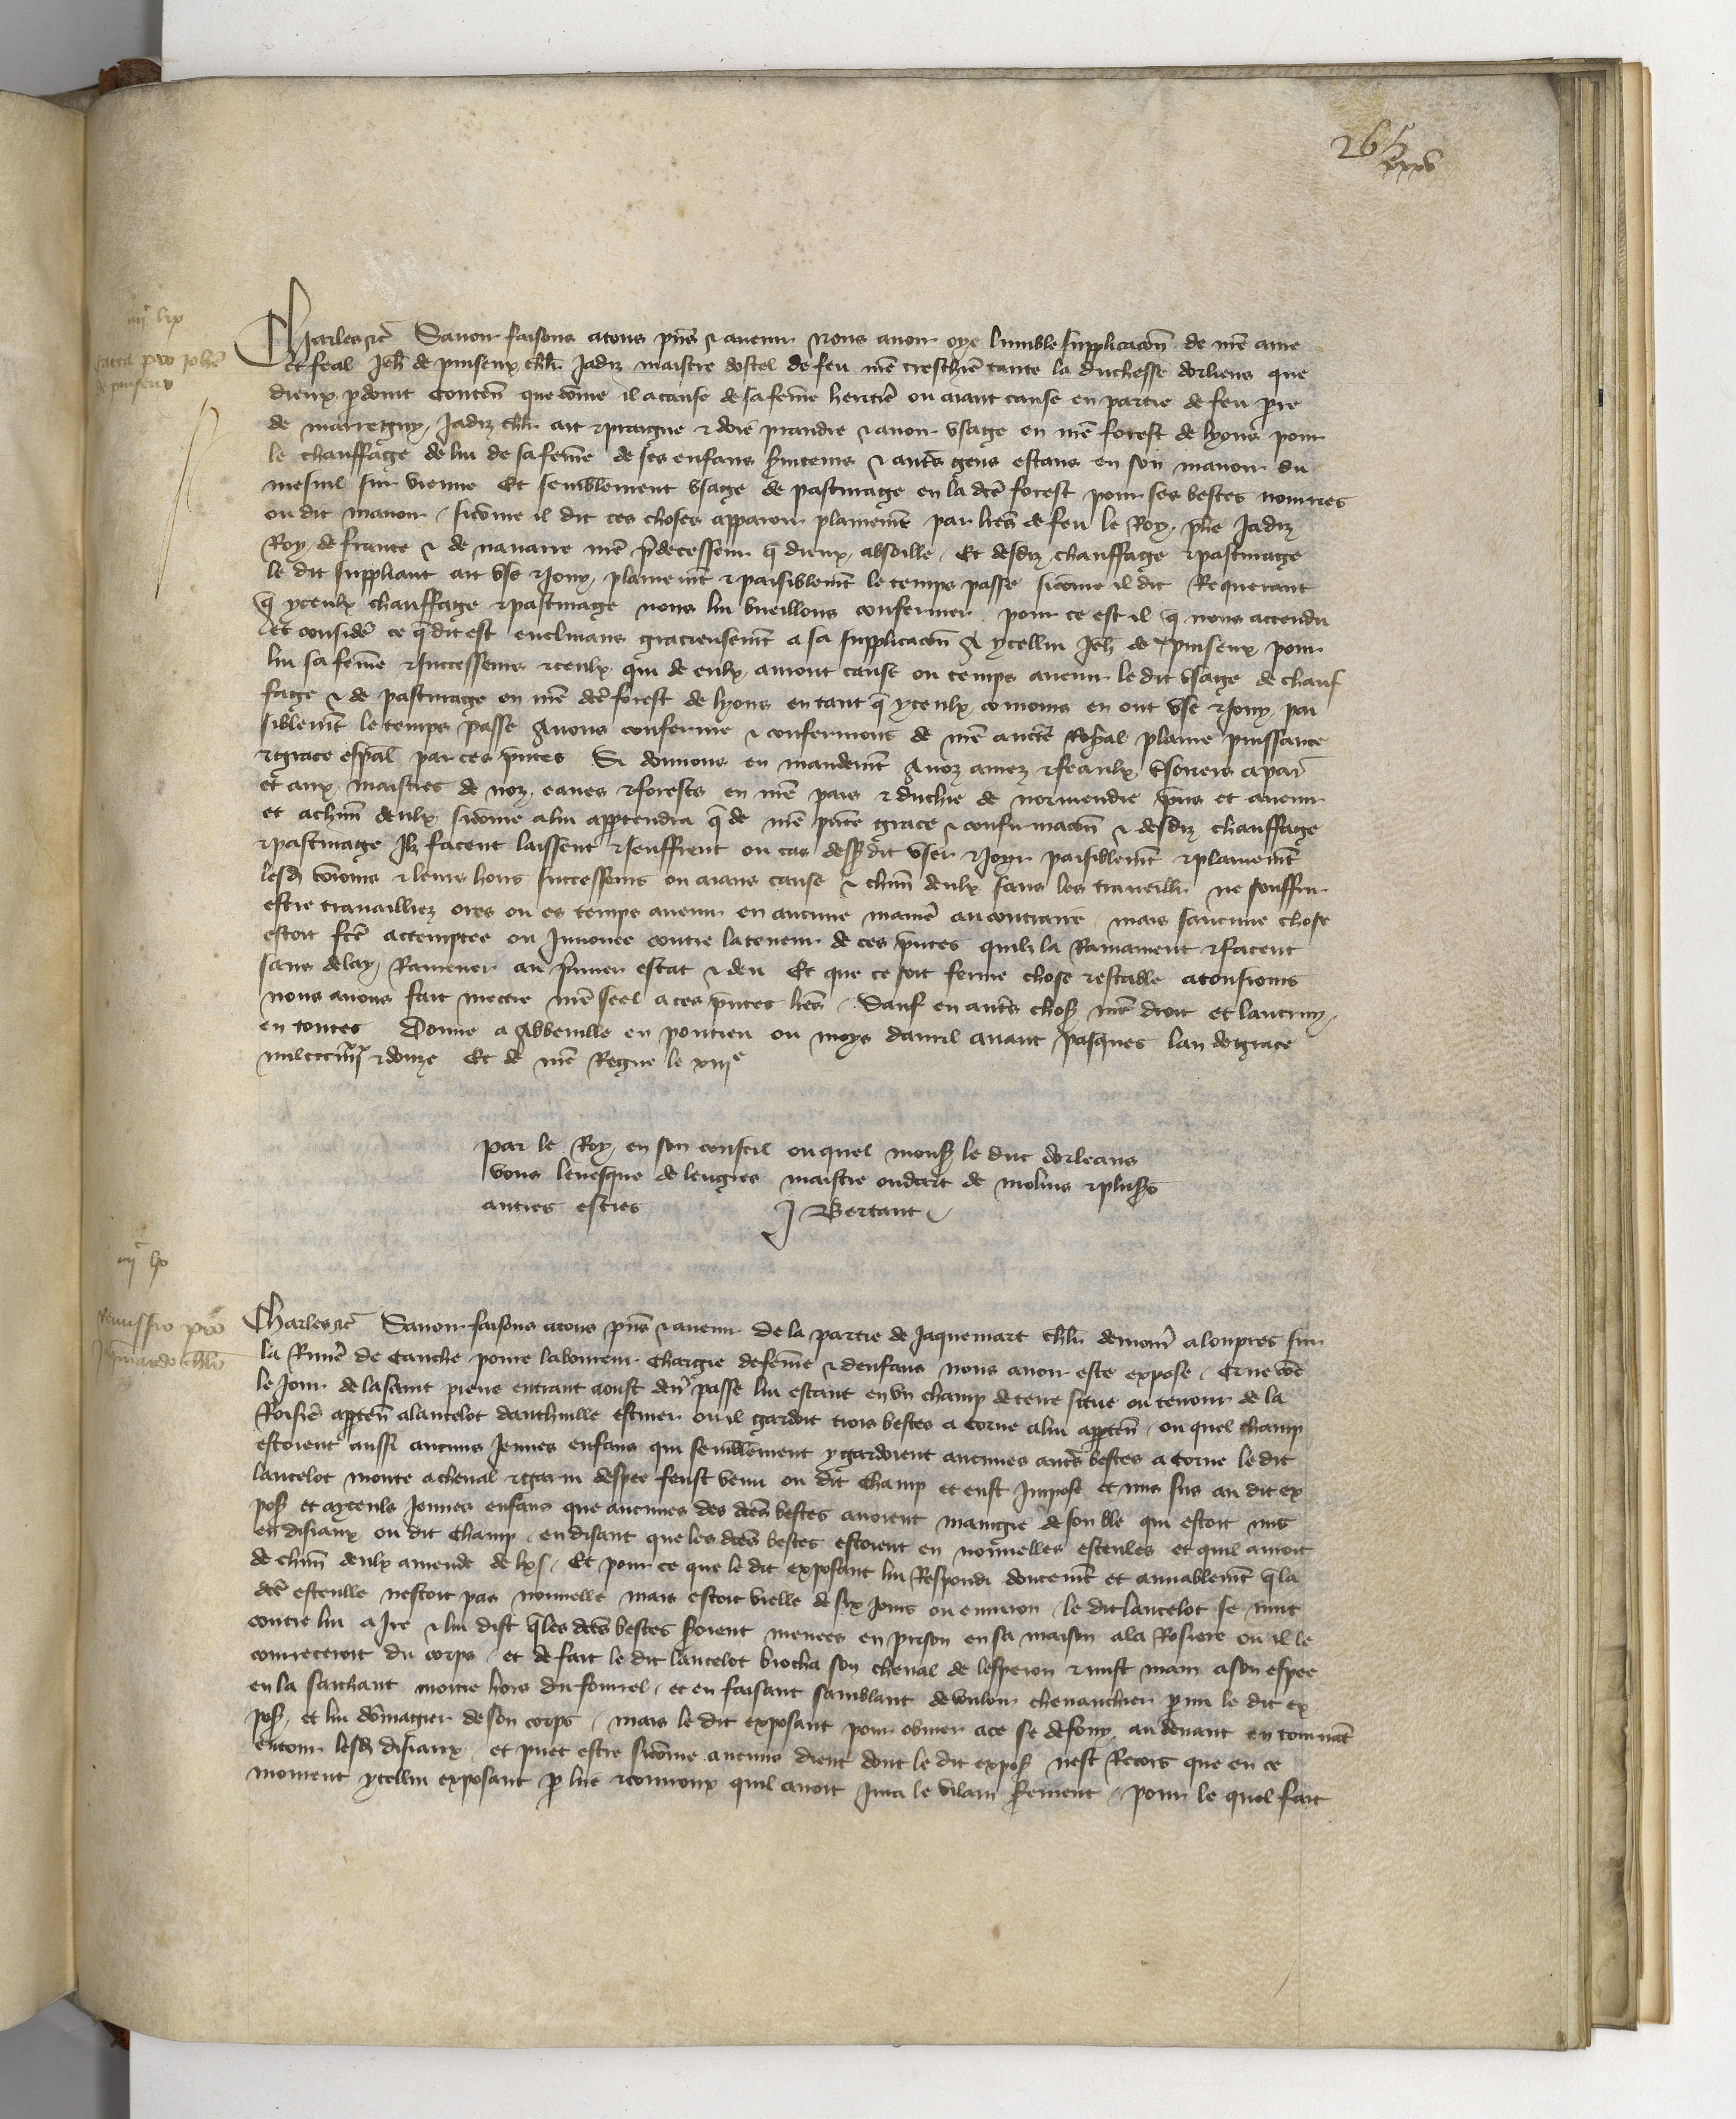 265
xxxv
iiijc lix
Carta pro Johe
de puiseux
Charles etc Savoir faisons atous pns & avenir Nous avoir oye lumble supplicacon de nre ame
et feal Jeh de puiseux chlr Jadiz maistre dostel de feu nre treschie tante la duchesse dorliens que
dieux pdoint Conten que come il acause de sa feme heritie ou aiant cause en partie de feu pre
de marregny Jadiz chlr ait & praigne & doie prandre & avoir usage en nre forest de lyons pour
le chauffage de lui de sa feme de ses enfans sviteurs & autes gens estans en son manoir du
mesnil sur vienne Et semblement usage de pasturage en la dce forest pour ses bestes nourries
ou dit manoir sicome il dit ces choses apparoir plainemt par lres de feu le Roy phe Jadiz
Roy de france & de navarre nre pdecesseur q dieux absoille Et desdiz chauffage & pasturage
le dit suppliant ait use & Joy plainemt & paisiblemt le temps passe sicome il dit Requerant
q yceulx chauffage & pasturage nous lui vueillons confermer pour ce est il q nous attendu
et conside ce q dit est enclinans gracieusemt a sa supplicacon A ycellui Jeh de puiseux pour
lui sa feme & successeurs & ceulx qui de eulx auront cause ou temps avenir le dit usage de chauf
fage & de pasturage en nre dce forest de lyons entant q yceulx conioins en ont use & Joy pai
siblemt le temps passe Avons conferme & confermons de nre aucte Royal plaine puissance
& grace espal par ces pntes Si donnons en mandemt A noz amez & feaulx tresoriers a paris
et aux maistres de noz eaues & forests en nre pais & duchie de normendie pns et avenir
et a chun deulx sicome alui appartendra q de nre pnte grace & confirmacon & desdiz chauffage
& pasturage Ilz facent laissent & seuffrent ou cas dessdit user & Joyr paisiblemt & plainemt
lesd conioins & leurs hoirs successeurs ou aians cause & chun deulx sans les traveillr ne souffrir
estre travailliez ores ou es temps avenir en aucune manie au contraire mais saucune chose
estoit fce attemptee ou Innovee contre la teneur de ces pntes quilz la Ramainent & facent
sans delay Ramener au pmier estat & deu Et que ce soit ferme chose & estable atousiours
nous avons fait mectre nre seel a ces pntes lres Sauf en autes chos nre droit et lautruy
en toutes Donne a Abbeville en pontieu ou moys davril avant pasques lan de grace
mil ccc iiijxx & douze Et de nre Regne le xiije
par le Roy en son conseil ouquel mons le duc dorleans
vous levesque de lengres maistre oudart de molins & plus
autres esties J Bertaut
iiijc lx
Remissio pro
Jaqmardo chlr
Charles etc Savoir faisons atous pns & avenir De la partie de Jaquemart chlr demour a loupres sur
la Rivie de Canche povre laboureur Chargie de feme & denfans nous avoir este expose Que come
le Jour de la saint pierre entrant aoust denr passe lui estant en un champ de terre scitue ou tenoir de la
Rosie appten a lancelot danthuille escuier ou il gardoit trois bestes a corne alui apten ou quel champ
estoient aussi aucuns Jeunes enfans qui semblement y gardoient aucunes autes bestes a corne le dit
lancelot monte acheval & garni despee feust venu ou dit Champ et eust Impose et mis sus au dit ex
pos et a yceuls Jeunes enfans que aucunes des dces bestes avoient mangie de son ble qui estoit mis
en disiaux ou dit Champ en disant que les dces bestes estoient en nouvelles esteules et quil avoit
de chun deulx amende de lxs Et pour ce que le dit exposant lui Respondi doucemt et amiablemt q la
dce esteulle nestoit pas nouvelle mais estoit vielle de six Jours ou environ le dit lancelot se mut
contre lui a Ire & lui dist q les dces bestes seroient menees en prison en sa maison a la Rosiere ou il le
courreceroit du corps et de fait le dit lancelot brocha son cheval de lesperon & mist main a son espee
en la sachant moitie hors du fourrel et en faisant samblant de vouloir chevauchier p mi le dit ex
pos et lui domagier de son corps mais le dit exposant pour obvier a ce se defouy au devant en tournat
entour lesd disiaux et puet estre sicome aucuns dient dont le dit expos nest Recors que en ce
moment ycellui exposant p Ire & courroux quil avoit Jura le vilain serement pour le quel fait